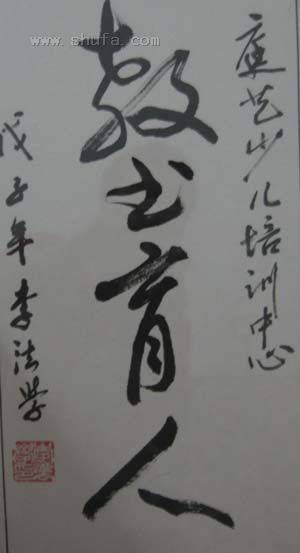 www.shufa.com
艺少儿培训中心
教书育人
戊子年李法学